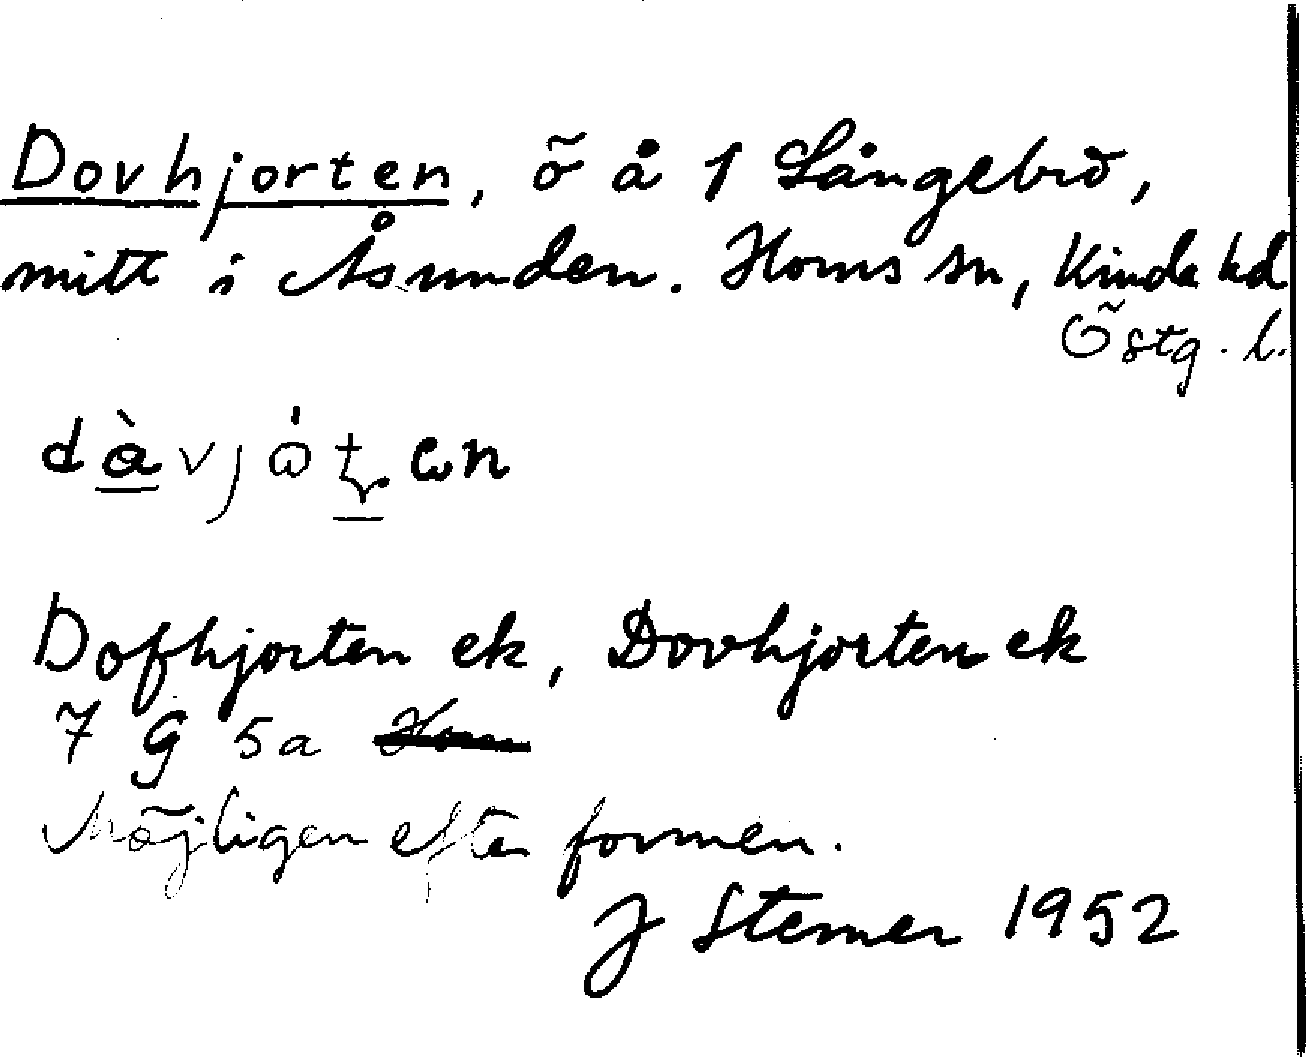 Dovhjorten, ö å 1 Långebrö,
mitt i Åsunden. Horns sn, Kinda hd
Östg. l.
dàvjót̬en
Dofhjorten ek, Dovhjorten ek
7 G 5a
Möjligen efter formen.
J Sterner 1952